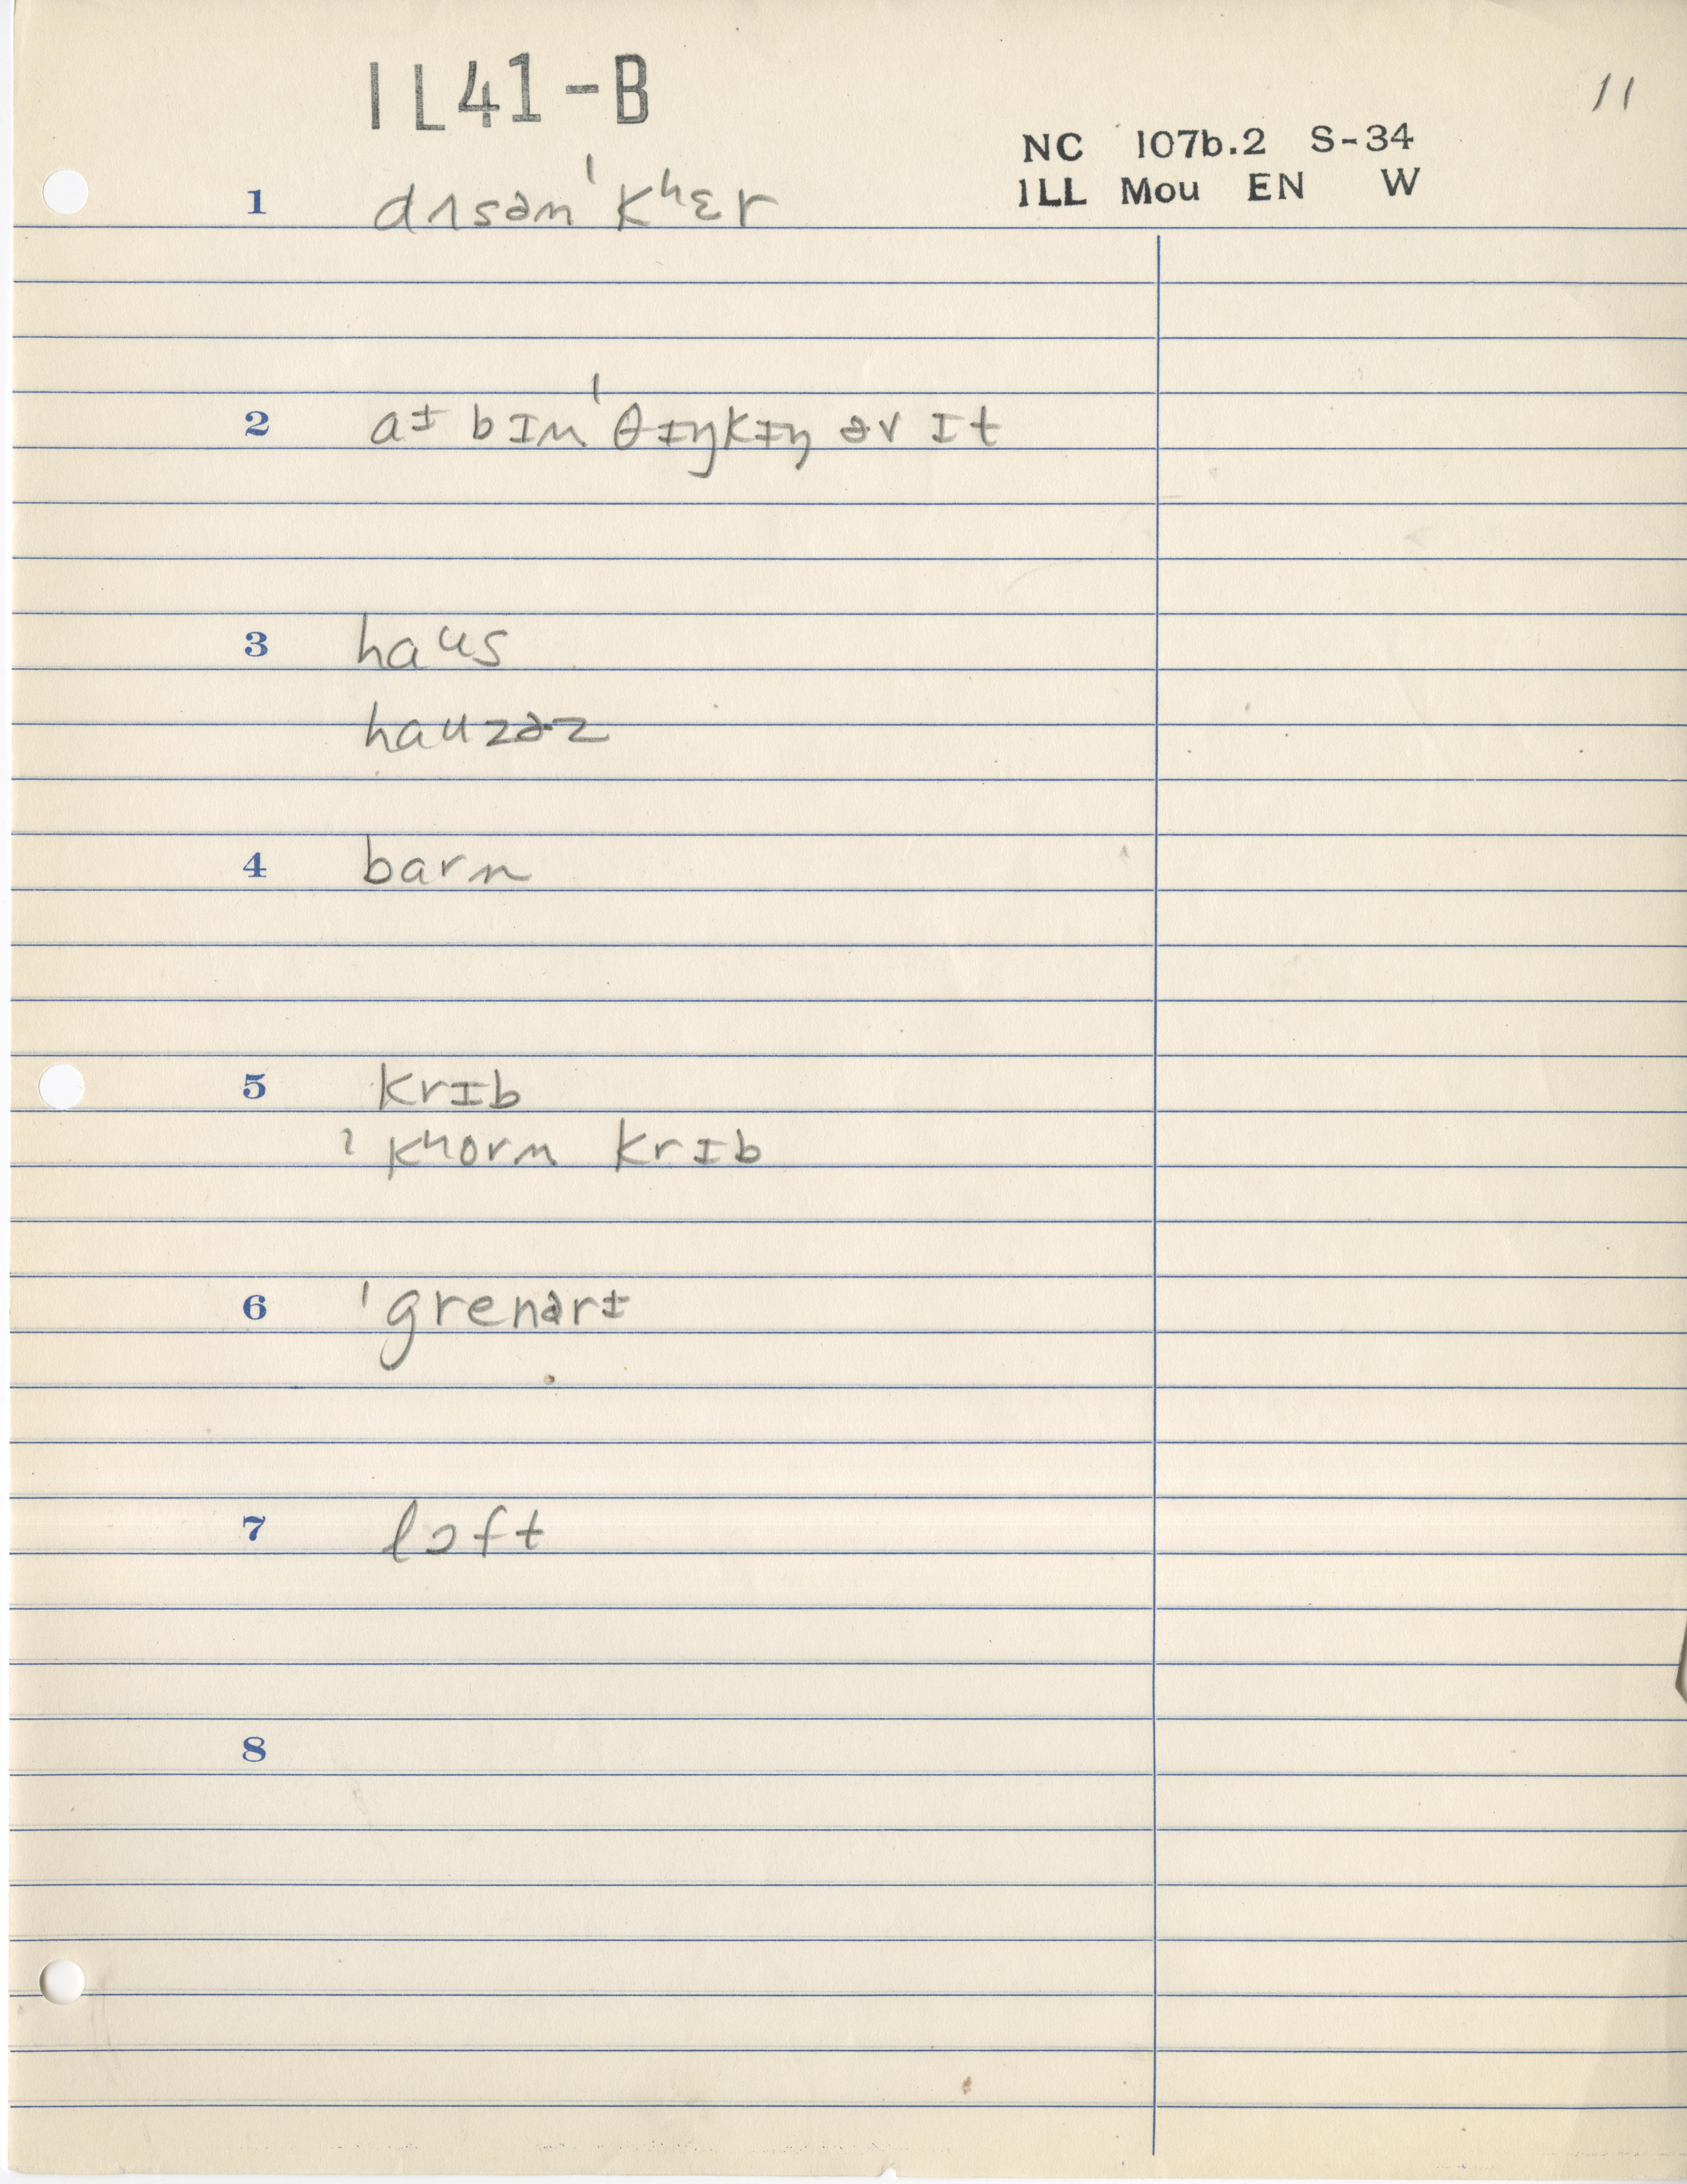 IL41-B
11
NC 107b.2 S-34
ILL Mou EN W
1 dʌsən ˈkʰɛr
2 aɨ bɪn ˈθɪŋkɪŋ əv ɪt
3 haus
hauzəz
4 barn
5 krɪb
ˈkʰorn krɪb
6 ˈgrenərɨ
7 lɔft
8